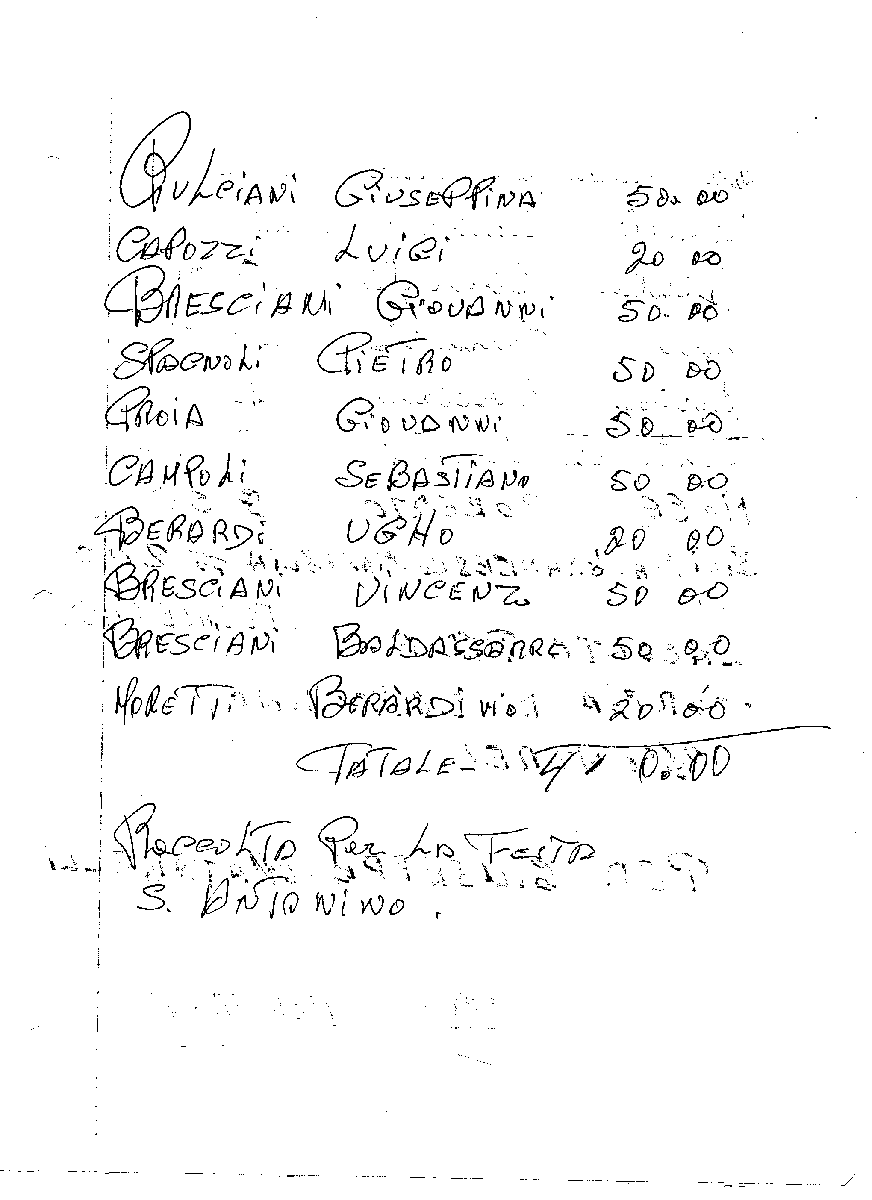 GIULCIANI GIUSEPPINA 50.00
CAPOZZI LUIGI 20 00
BRESCIANI GIOVANNI 50.00
SPAGNOLI PIETRO 50 00
PROIA GIOVANNI 50 00
CAMPOLI SEBASTIANO 50 00
BERARDI UGHO 20 00
BRESCIANI VINCENZO 50 00
BRESCIANI BALDASSARRE 50.00
MORETTI BERARDINO 20 00
TATALE 410.00
RACCOLTA PER LA FESTA
S. ANTONINO.